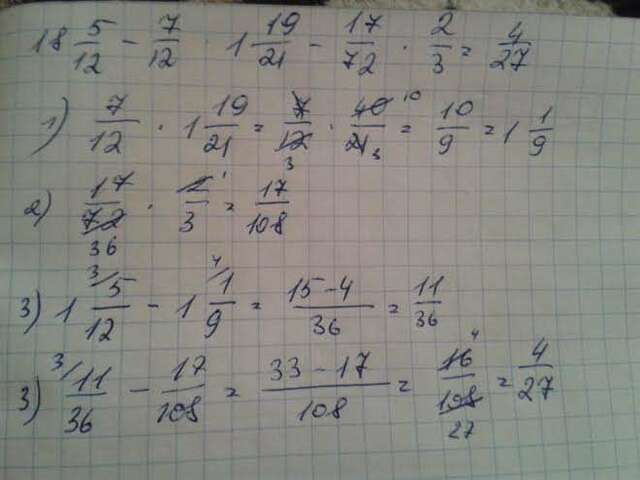 18 5/12 - 7/12 · 1 19/21 - 17/72 · 2/3 = 4/27
1) 7/12 · 1 19/21 = 7/12 3 · 40 10/21 3 = 10/9 = 1 1/9
2) 17/72 36 · 2 1/3 = 17/108
3) 1 3/ 5/12 - 1 4/ 1/9 = 15-4/36 = 11/36
3) 3/ 11/36 - 17/108 = 33-17/108 = 16 4/108 27 = 4/27